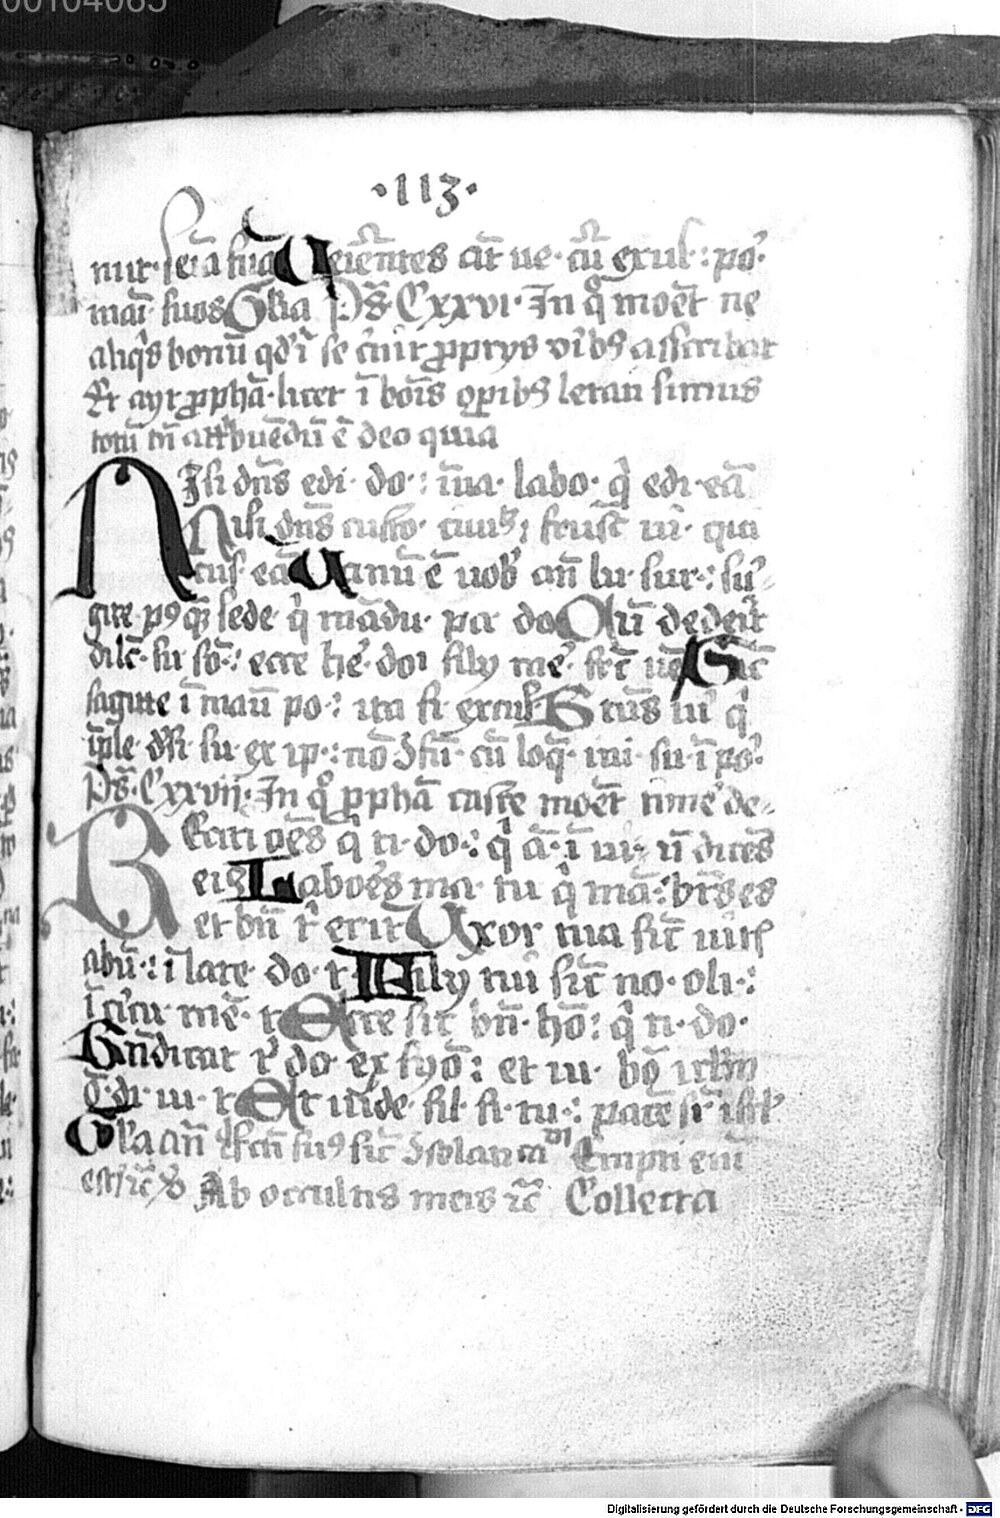 00104065
·113·
mit· seīa sua Ueiētes aūt ue· cū exul·: po·
mai suos Gl̄ia Ps̄· Cxxvi· In qo moēt ne
aliq̄s bonū qd' ī se cuīt ꝓprys virib9 asscribat
Et ayt ꝓphā· licet ī bōis oꝑib9 letati simus
totū tn̄ attribuēdū ē deo quia
Nisi dn̄s edi· do·: īua· labo· qͥ edi· eā
Nisi dn̄s custo· ciuit; frust̄ ui· qui
cus· eā Uanū ē uob' an̄ lu· sur·: sur
gite p9qꝫ sede· qͥ mādu· pa· do Cū dederit
dilc̄· su· so·: ecce he· doī fily mer· fruc̄ uē Sic̄
sagitte ī manū po·: ita fi· excus· Btūs uir qͥ
īple· desi· su· ex ip·: nō ꝯfu· cū loq̄· ini· su· ī po·
Ps̄· Cxxvij· In qo ꝓphā caste moēt time' de
Beati oēs qͥ ti· do·: qͥ ā· ī ui· ei9 dices
Labōes ma· tu· qͥ mā·: bt̄us es
et bn̄ t' erit Uxor tua sic̄ uitis
abū·: ī late· do· t· Fily tui sic̄ no· oli·:
ī cic̄u mē· t· Ecce sic bn̄· hō: qͥ ti· do·
Bn̄dicat t' do· ex syō: et ui· bo irl̄m
o· di· ui· t· Et uide· fil· fi· tu·: pacē sr̄ isr̄l'
Gl̄a an̄ Fc̄ti sum9 sic̄ ꝯsolati an̄ Erripui enī
Ab occultis meis ⁊c̄ Collecta
Digitalisierung gefördert durch die Deutsche Forschungsgemeinschaft - DFG